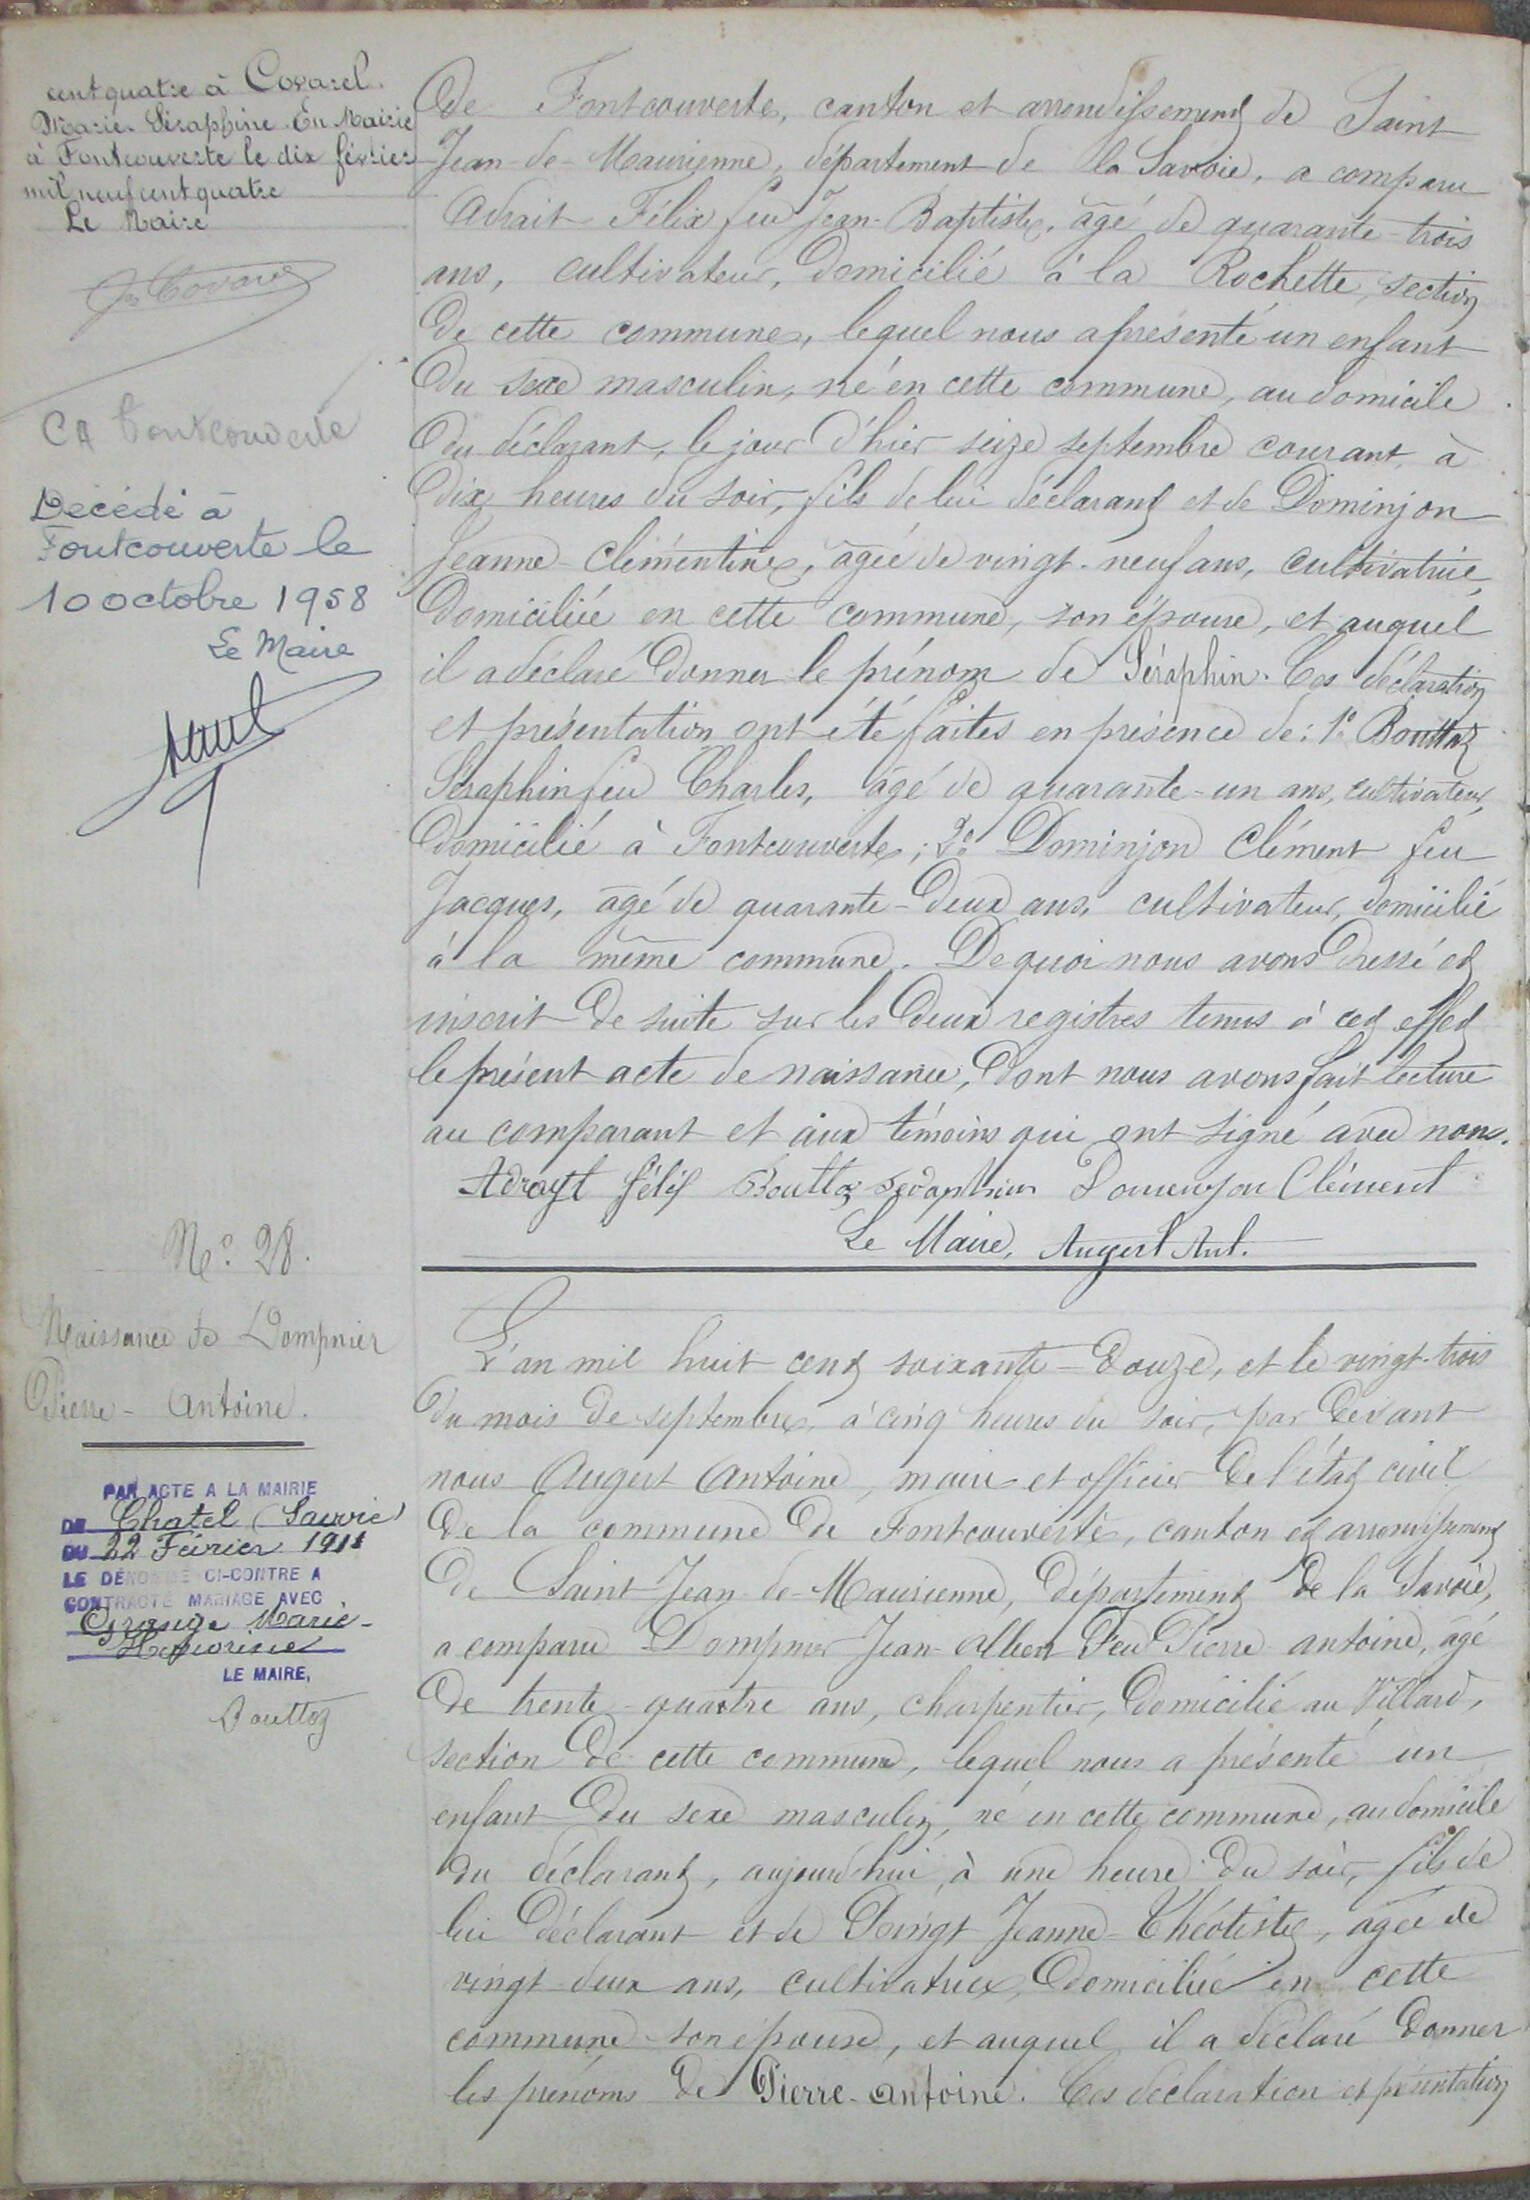 cent quatre à Covarel
Marie Séraphine. En Mairie
à Fontcouverte le dix février
mil neuf cent quatre
Le Maire
Décédé à
Fontcouverte le
10 octobre 1958
Le Maire
de Fontcouverte, canton et arrondissement de Saint
Jean-de-Maurienne, département de la Savoie, a comparu
Adrait Félix feu Jean-Baptiste, âgé de quarante-trois
ans, cultivateur, domicilié à la Rochette, section
de cette commune, lequel nous a présenté un enfant
du sexe masculin, né en cette commune, au domicile
du déclarant, le jour d'hier seize septembre courant, à
dix heures du soir, fils de lui déclarant et de Dominjon
Jeanne-Clémentine, âgée de vingt-neuf ans, cultivatrice,
domiciliée en cette commune, son épouse, et auquel
il a déclaré donner le prénom de Séraphin. Ces déclaration
et présentation ont été faites en présence de: 1º Bouttaz
Séraphin feu Charles, âgé de quarante-un ans, cultivateur,
domicilié à Fontcouverte; 2º Dominjon Clément feu
Jacques, âgé de quarante-deux ans, cultivateur, domicilié
à la même commune. De quoi nous avons dressé et
inscrit de suite sur les deux registres tenus à cet effet
le présent acte de naissance, dont nous avons fait lecture
au comparant et aux témoins qui ont signé avec nous.
Adrayt Félix Bouttaz Séraphin Dominjon Clément
Le Maire, Augert Ant.
Nº. 28.
Naissance de Dompnier
Pierre-Antoine.
PAR ACTE A LA MAIRIE
DE Chatel (Savoie)
DU 22 Février 1911
LE DÉNOMMÉ CI-CONTRE A
CONTRACTÉ MARIAGE AVEC
Grange Marie-
LE MAIRE,
Bouttaz
L'an mil huit cent soixante-douze, et le vingt-trois
du mois de septembre, à cinq heures du soir, par devant
nous Augert Antoine, maire et officier de l'état civil
de la commune de Fontcouverte, canton et arrondissement
de Saint-Jean-de-Maurienne, département de la Savoie,
a comparu Dompnier Jean-Albert Feu Pierre antoine, âgé
de trente-quatre ans, charpentier, domicilié au Villard,
section de cette commune, lequel nous a présenté un
enfant du sexe masculin, né en cette commune, au domicile
du déclarant, aujourd'hui, à une heure du soir, fils de
lui déclarant et de Poingt Jeanne-Théotiste, âgée de
vingt-deux ans, cultivatrice, domiciliée en cette
commune son épouse, et auquel il a déclaré donner
les prénoms de Pierre-Antoine. Ces déclaration et présentation